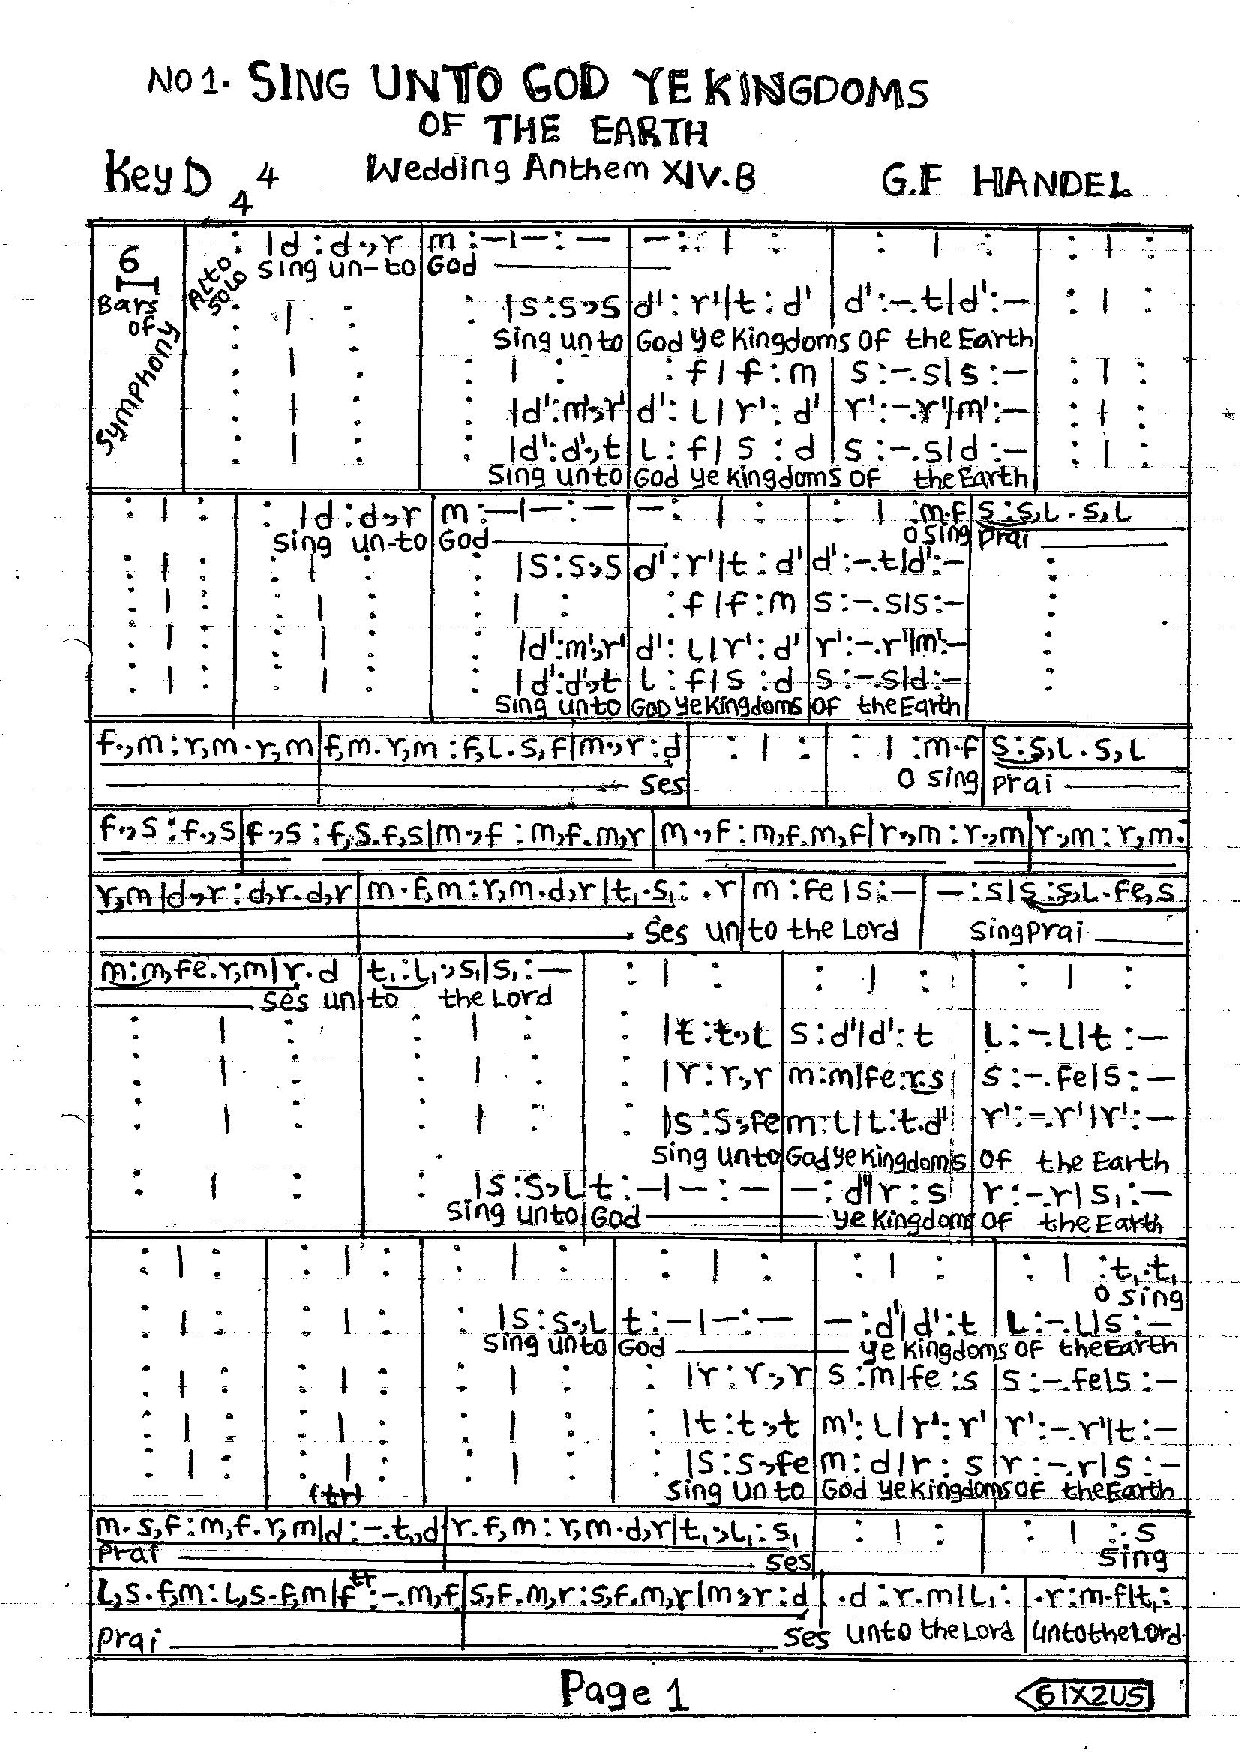 NO 1. SING UNTO GOD YE KINGDOMS
OF THE EARTH
Key D 4 4 Wedding Anthem XIV.B G.F HANDEL
6 Bars of Symphony
Alto Solo
: |d :d.,r m :-|-:- -: | : : | : : | :
Sing un-to God
|s :s.,s d' : r'|t : d' d' :-.t|d' :- : | :
Sing unto God ye Kingdoms of the Earth
: | : : f | f : m s :-.s|s :- : | :
|d':m'.,r' d' : L | r' : d' r' :-.r'|m' :- : | :
|d':d'.,t L : f | s : d s :-.s|d :- : | :
Sing unto God ye Kingdoms of the Earth
: | : : |d :d.,r m :-|-:- -: | : : | :m.f s :s,L.s,L
Sing un-to God O sing prai
|s :s.,s d' : r'|t : d' d' :-.t|d' :-
: | : : f | f : m s :-.s|s :-
|d':m'.,r' d' : L | r' : d' r' :-.r'|m' :-
|d':d'.,t L : f | s : d s :-.s|d :-
Sing unto God ye Kingdoms of the Earth
f.,m : r,m.r,m f,m.r,m : f,L.s,f|m.,r : d : | : : | :m.f s :s,L.s,L
ses O sing prai
f.,s : f.,s f.,s : f,s.f,s|m.,f : m,f.m,r m.,f : m,f.m,f|r.,m : r.,m r.,m : r,m.
r,m|d.,r : d,r.d,r m.f,m : r,m.d,r|t,.s, : .r m : fe|s :- -: s|s :s,L.fe,s
ses unto the Lord Sing prai
m:m,fe.r,m|r.d t, : L,.,s,|s, :- : | : : | : : | :
ses unto the Lord
|t :t.,L s : d'|d' : t L :-.L|t :-
|r : r.,r m:m|fe:r.s s :-.fe|s :-
|s :s.,fe m : L|L : t.d' r' :-.r'|r' :-
Sing unto God ye Kingdoms of the Earth
|s :s.,L t :-|-:- -: d'|r : s r :-.r|s, :-
Sing unto God ye Kingdoms of the Earth
: | : : | : : | : : | : : | : : | :t,.t,
O sing
|s :s.,L t :-|-:- -:d'|d':t L :-.L|s :-
Sing unto God ye Kingdoms of the Earth
|r : r.,r s : m|fe : s s :-.fe|s :-
|t : t.,t m' : L | r' : r' r' :-.r'|t :-
|s :s.,fe m : d|r : s r :-.r|s :-
(tr) Sing unto God ye Kingdoms of the Earth
m.s,f : m,f.r,m|d :-.t,,d r.f,m : r,m.d,r|t,.,L, : s, : | : : | : s
Prai ses Sing
L,s.f,m : L,s.f,m|f tr :-.m,f s,f.m,r : s,f.m,r|m.,r : d .d : r.m|L, : .r : m.f|t, :
Prai ses unto the Lord unto the Lord
Page 1
61X2US